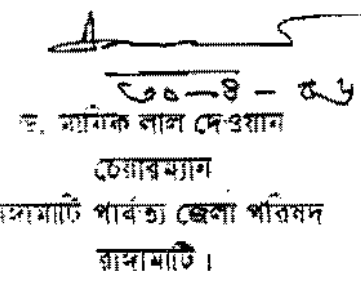 ৩০-৪-০৬
ড. মানিক লাল দেওয়ান
চেয়ারম্যান
রাঙ্গামাটি পার্বত্য জেলা পরিষদ
রাঙ্গামাটি।